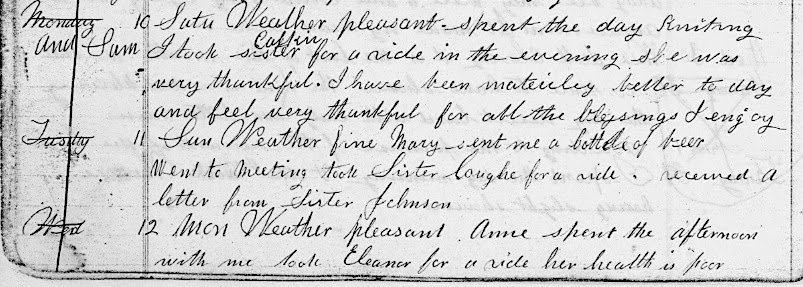 Monday 10 Satu Weather pleasant spent the day Kniting
and Sam I took sister Caffin for a ride in the evening she was
very thankful. I have been materiley better to day
and feel very thankful for all the blessings I enjoy
Tusday 11 Sun Weather fine Mary sent me a bottle of beer
Went to meeting took Sister for a ride. received a
letter from Sister Johnson
Wed 12 Mon Weather pleasant Anne spent the afternoon
with me took Eleanor for a ride her health is poor